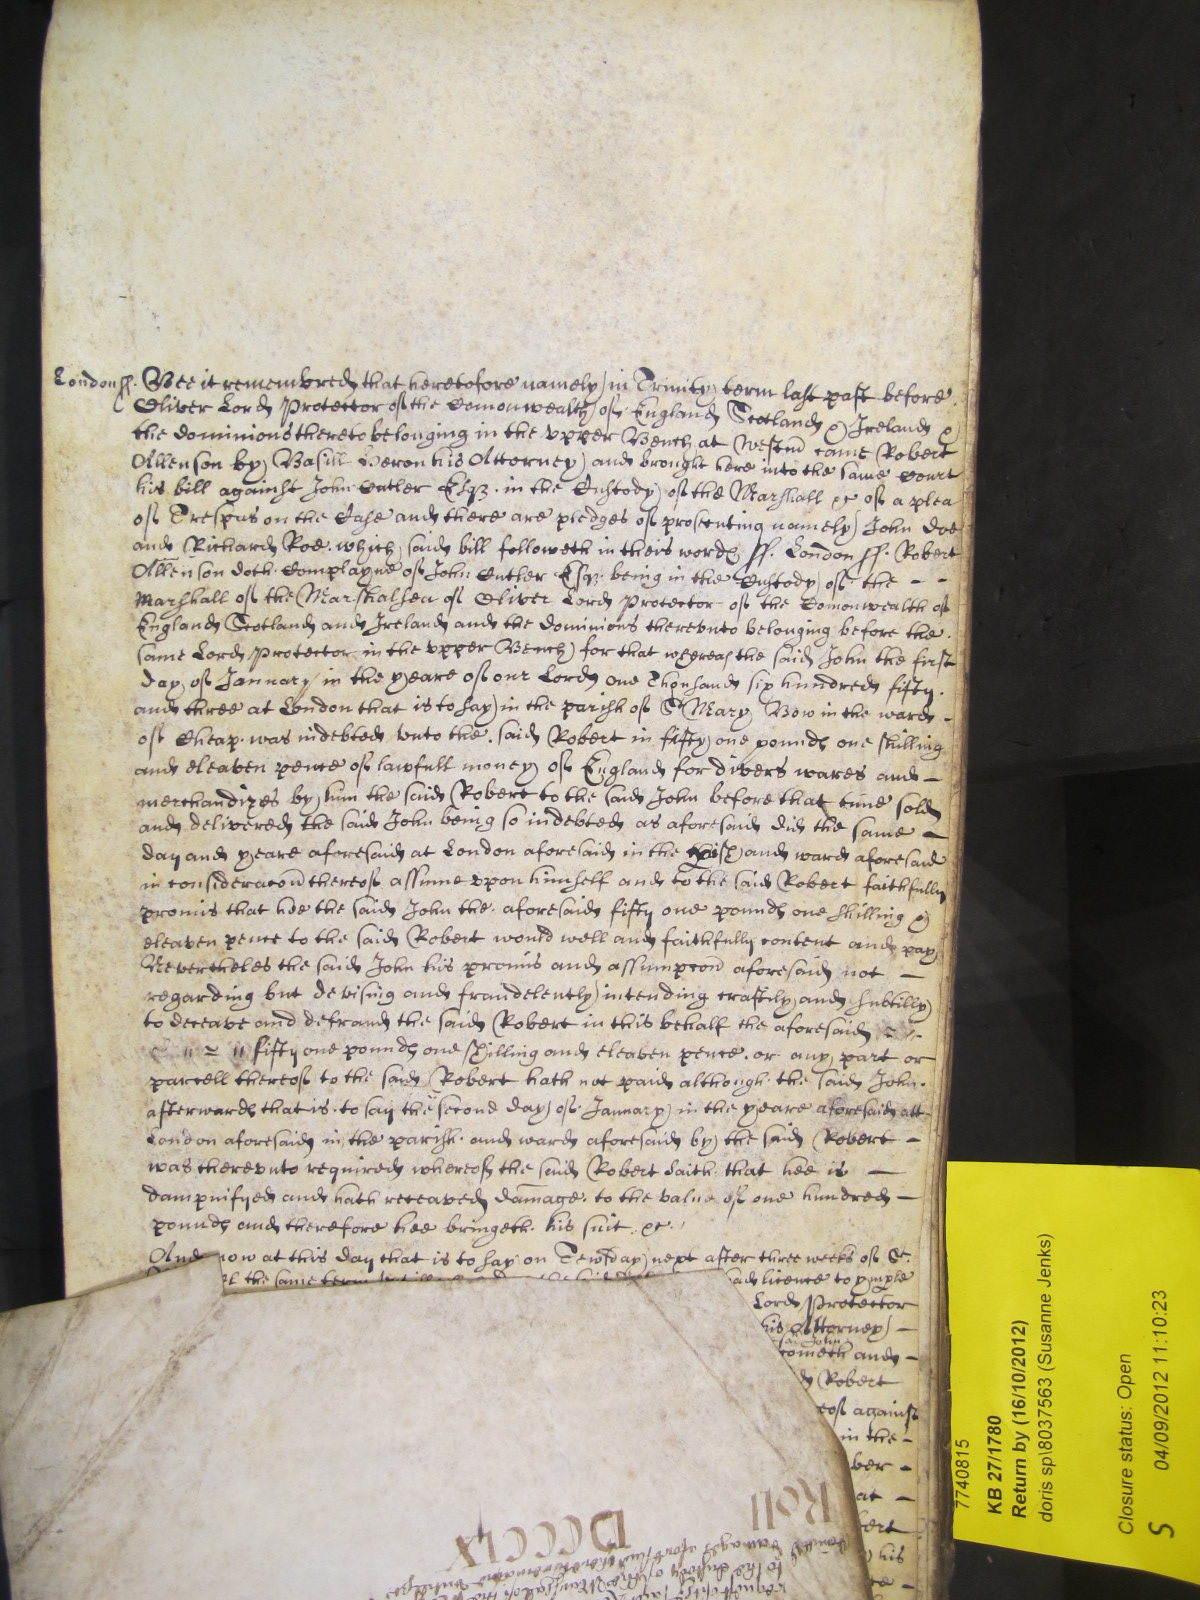 London ss. Bee it remembred that heretofore namely in Trinity term last past before
Oliver Lord Protector of the Comonwealth of England Scotland & Ireland &
the dominions thereto belonging in the upper Bench at Westm came Robert
Allenson by Basill Heron his Attorney and brought here into the same Court
his bill against John Cutler Esqr. in the Custody of the Marshall &c of a plea
of Trespas on the Case and there are pledges of prosecuting namely John Doe
and Richard Roe. which said bill followeth in theis words ss. London ss. Robert
Allenson doth Complayne of John Cutler Esqr being in the Custody of the - -
Marshall of the Marshalsea of Oliver Lord Protector of the Comonwealth of
England Scotland and Ireland and the dominions thereunto belonging before the
same Lord Protector in the upper Bench for that whereas the said John the first
day of January in the yeare of our Lord one Thousand six hundred fifty
and three at London that is to say in the parish of St Mary Bow in the ward -
of Cheap was indebted unto the said Robert in fifty one pounds one shilling
and eleaven pence of lawfull money of England for divers wares and -
merchandizes by him the said Robert to the said John before that time sold
and delivered the said John being so indebted as aforesaid did the same -
day and yeare aforesaid at London aforesaid in the and ward aforesaid
in consideracon thereof assume upon himself and to the said Robert faithfully
promis that hee the said John the aforesaid fifty one pounds one shilling &
eleaven pence to the said Robert would well and faithfully content and pay
Nevertheles the said John his promis and assumpcon aforesaid not -
regarding but devising and fraudelently intending craftily and subtilly
to deceave and defraud the said Robert in this behalf the aforesaid
fifty one pounds one shilling and eleaven pence or any part or
parcell thereof to the said Robert hath not paid although the said John
afterwards that is to say the second day of January in the yeare aforesaid att
London aforesaid in the parish and ward aforesaid by the said Robert -
was thereunto required whereof the said Robert saith that hee is -
dampnifyed and hath receaved damage to the value of one hundred -
pounds and therefore hee bringeth his suit &c.
And now at this day that is to say on Tewsday next after three weeks of St
the same term licence to ymple
Lord Protector
his Attorney -
said John
cometh and -
Robert
against
in the -
at -
his
Roll
DCCCLX
7740815
KB 27/1780
Return by (16/10/2012)
doris sp\8037563 (Susanne Jenks)
Closure status: Open
04/09/2012 11:10:23
S